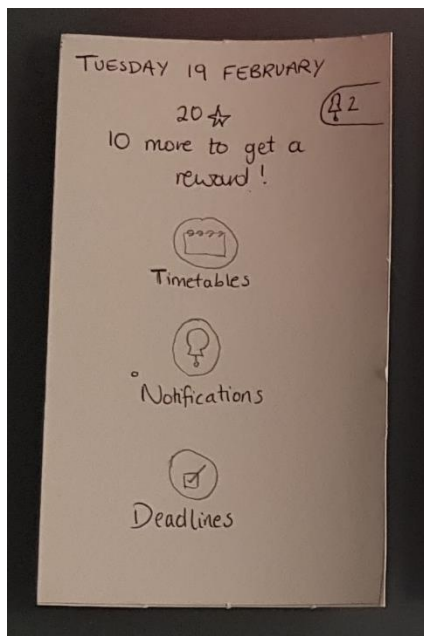 TUESDAY 19 FEBRUARY
2
20 ☆
10 more to get a
reward!
Timetables
Notifications
Deadlines